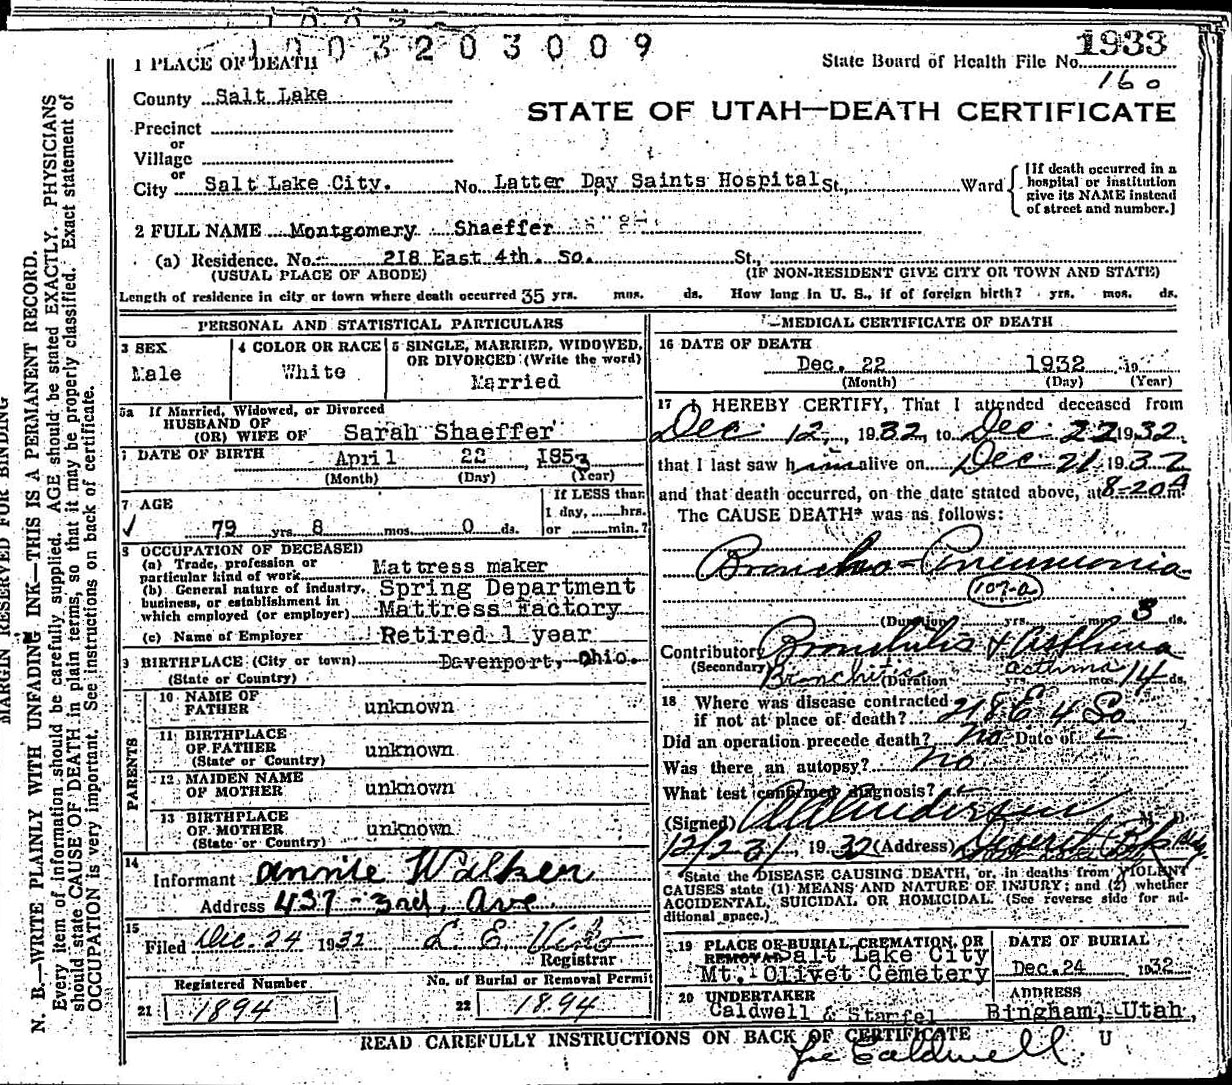 1003203009
1933
State Board of Health File No.
160
1 PLACE OF DEATH
County Salt Lake
STATE OF UTAH—DEATH CERTIFICATE
Precinct
or
Village
or
City Salt Lake City. No. Latter Day Saints Hospital St., Ward
[If death occurred in a hospital or institution give its NAME instead of street and number.]
2 FULL NAME Montgomery Shaeffer
(a) Residence. No. 218 East 4th. So. St.,
(USUAL PLACE OF ABODE) (IF NON-RESIDENT GIVE CITY OR TOWN AND STATE)
Length of residence in city or town where death occurred 35 yrs. mos. ds. How long in U. S., if of foreign birth? yrs. mos. ds.
PERSONAL AND STATISTICAL PARTICULARS
3 SEX
Male
4 COLOR OR RACE
White
5 SINGLE, MARRIED, WIDOWED, OR DIVORCED (Write the word)
Married
5a If Married, Widowed, or Divorced
HUSBAND OF
(OR) WIFE OF Sarah Shaeffer
DATE OF BIRTH April 22, 1853
(Month) (Day) (Year)
7 AGE
79 yrs. 8 mos. 0 ds.
If LESS than
1 day, hrs.
or min.?
8 OCCUPATION OF DECEASED
(a) Trade, profession or
particular kind of work Mattress maker
(b) General nature of industry, Spring Department
business, or establishment in
which employed (or employer) Mattress Factory
(c) Name of Employer Retired 1 year
9 BIRTHPLACE (City or town) Davenport, Ohio.
(State or Country)
PARENTS
10 NAME OF
FATHER unknown
11 BIRTHPLACE
OF FATHER unknown
(State or Country)
12 MAIDEN NAME
OF MOTHER unknown
13 BIRTHPLACE
OF MOTHER unknown
(State or Country)
14
Informant Annie Walker
Address 437 - 3rd, Ave
15
Filed Dec. 24 1932 L. E.
Registrar
Registered Number
21 1894
No. of Burial or Removal Permit
22 1894
MEDICAL CERTIFICATE OF DEATH
16 DATE OF DEATH
Dec. 22 1932 19
(Month) (Day) (Year)
17 I HEREBY CERTIFY, That I attended deceased from
Dec. 12, 1932, to Dec. 22 1932.
that I last saw him alive on Dec. 21 1932
and that death occurred, on the date stated above, at 8-20 A m.
The CAUSE DEATH* was as follows:
Broncho-Pneumonia
107-a
(Duration yrs. mos. 3 ds.
Contributory Bronchitis & Asthma
(Secondary) Bronchitis asthma
(Duration yrs. mos. 14 ds.
18 Where was disease contracted
if not at place of death? 218 E 4 So
Did an operation precede death? No Date of
Was there an autopsy? No
What test confirmed diagnosis?
(Signed) Anderson M. D.
12/23, 1932 (Address) Deseret Bk
*State the DISEASE CAUSING DEATH, or, in deaths from VIOLENT
CAUSES state (1) MEANS AND NATURE OF INJURY; and (2) whether
ACCIDENTAL, SUICIDAL OR HOMICIDAL. (See reverse side for ad-
ditional space.)
19 PLACE OF BURIAL, CREMATION, OR
REMOVAL Salt Lake City
Mt. Olivet Cemetery
DATE OF BURIAL
Dec. 24 1932
20 UNDERTAKER
Caldwell & Stanfel
ADDRESS
Bingham, Utah,
READ CAREFULLY INSTRUCTIONS ON BACK OF CERTIFICATE U
Caldwell
MARGIN RESERVED FOR BINDING
N. B.—WRITE PLAINLY WITH UNFADING INK—THIS IS A PERMANENT RECORD.
Every item of information should be carefully supplied. AGE should be stated EXACTLY. PHYSICIANS
should state CAUSE OF DEATH in plain terms, so that it may be properly classified. Exact statement of
OCCUPATION is very important. See instructions on back of certificate.